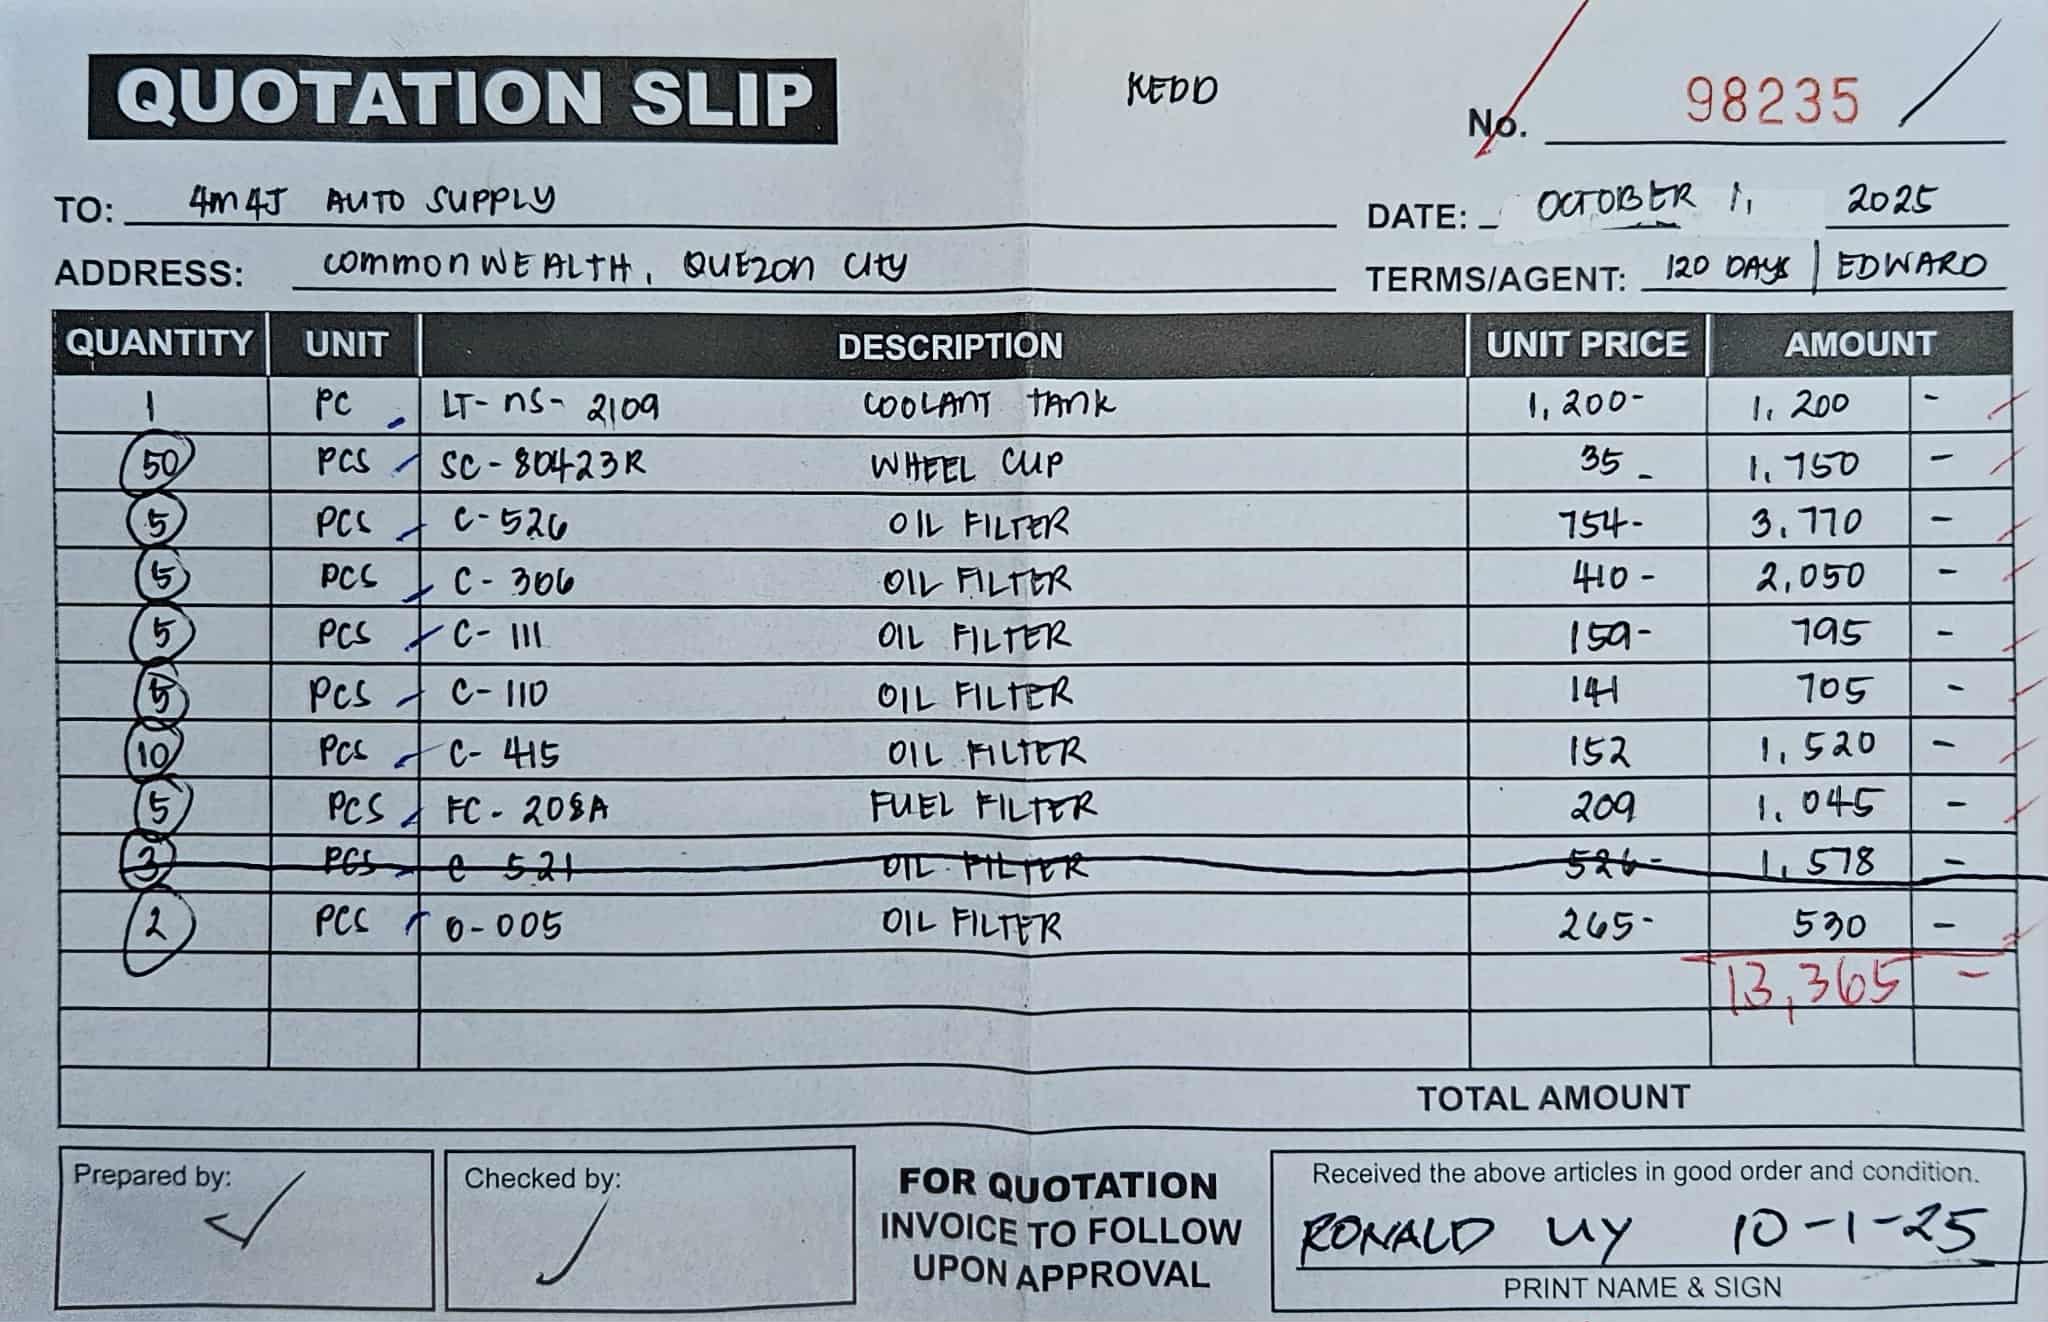 QUOTATION SLIP KEDD No. 98235
TO: 4M4J AUTO SUPPLY DATE: OCTOBER 1, 2025
ADDRESS: COMMONWEALTH, QUEZON CITY TERMS/AGENT: 120 DAYS | EDWARD
QUANTITY UNIT DESCRIPTION UNIT PRICE AMOUNT
1 PC LT-NS-2109 COOLANT TANK 1,200- 1,200 -
50 PCS SC-80423R WHEEL CUP 35- 1,750 -
5 PCS C-526 OIL FILTER 754- 3,770 -
5 PCS C-306 OIL FILTER 410- 2,050 -
5 PCS C-111 OIL FILTER 159- 795 -
5 PCS C-110 OIL FILTER 141 705 -
10 PCS C-415 OIL FILTER 152 1,520 -
5 PCS FC-208A FUEL FILTER 209 1,045 -
3 PCS C-521 OIL FILTER 526- 1,578 -
2 PCS O-005 OIL FILTER 265- 530 -
13,365 -
TOTAL AMOUNT
Prepared by: Checked by: FOR QUOTATION INVOICE TO FOLLOW UPON APPROVAL
Received the above articles in good order and condition.
RONALD UY 10-1-25
PRINT NAME & SIGN